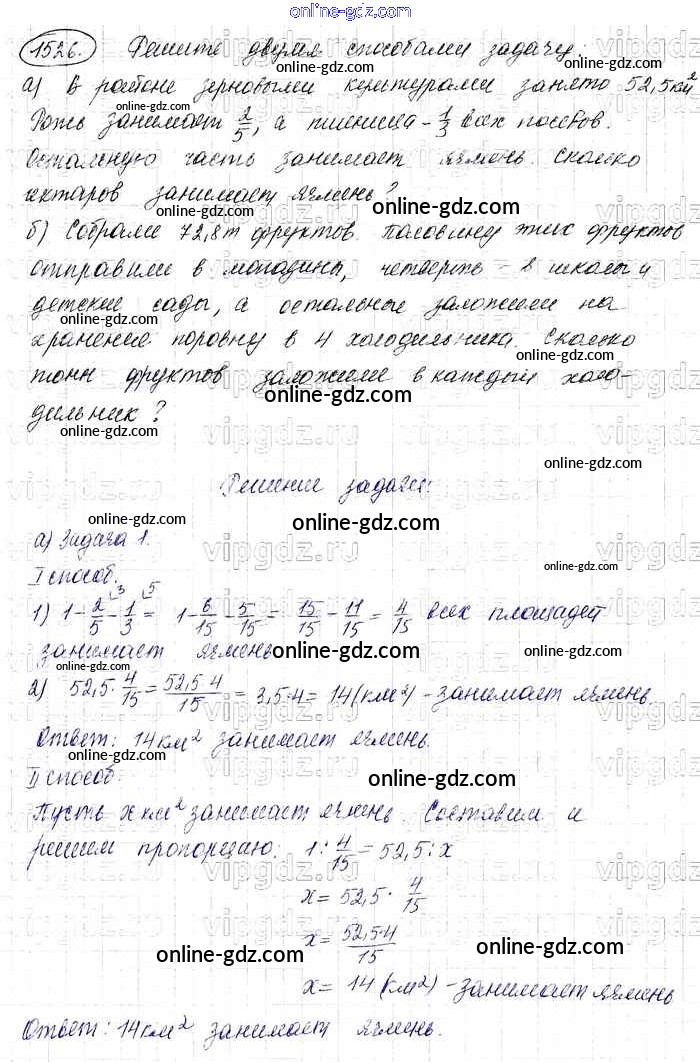 online-gdz.com
1526. Решите двумя способами задачу:
а) В районе зерновыми культурами занято 52,5км²
online-gdz.com online-gdz.com
Рожь занимает 2/5, а пшеница - 1/3 всех посевов.
Остальную часть занимает ячмень. Сколько
гектаров занимает ячмень?
online-gdz.com online-gdz.com
б) Собрали 72,8т фруктов. Половину этих фруктов
отправили в магазины, четверть - в школы и
online-gdz.com
детские сады, а остальные заложили на
online-gdz.com
хранение поровну в 4 холодильника. Сколько
online-gdz.com
тонн фруктов заложили в каждый холо-
online-gdz.com
дильник?
online-gdz.com online-gdz.com
online-gdz.com
Решение задачи:
online-gdz.com online-gdz.com
а) Задача 1.
online-gdz.com
I способ.
1) 1-2/5-1/3= 1-6/15-5/15= 15/15-11/15=4/15 всех площадей
занимает ячмень online-gdz.com
2) 52,5·4/15=52,5·4/15=3,5·4=14(км²)-занимает ячмень.
Ответ: 14км² занимает ячмень.
online-gdz.com
II способ.
online-gdz.com
Пусть x км² занимает ячмень. Составим и
решим пропорцию. 1:4/15=52,5:x
x=52,5·4/15
x=52,5·4/15
online-gdz.com online-gdz.com
x=14(км²)-занимает ячмень
Ответ: 14км² занимает ячмень.